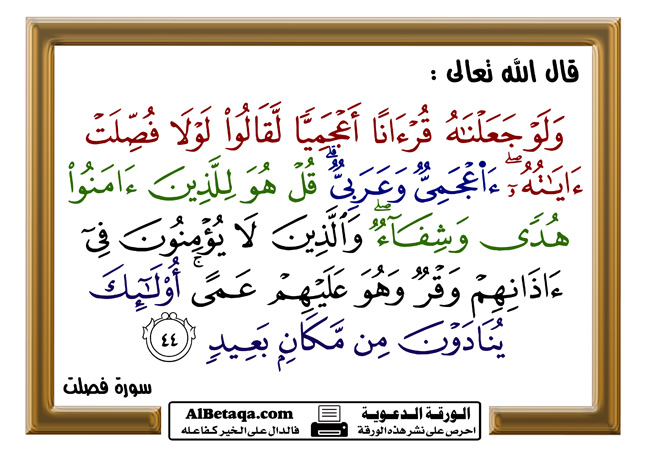 قال الله تعالى :
وَلَوْ جَعَلْنَٰهُ قُرْءَانًا أَعْجَمِيًّا لَّقَالُوا۟ لَوْلَا فُصِّلَتْ
ءَايَٰتُهُۥٓ ۖ ءَا۬عْجَمِىٌّ وَعَرَبِىٌّ ۗ قُلْ هُوَ لِلَّذِينَ ءَامَنُوا۟
هُدًى وَشِفَآءٌ ۖ وَٱلَّذِينَ لَا يُؤْمِنُونَ فِىٓ
ءَاذَانِهِمْ وَقْرٌ وَهُوَ عَلَيْهِمْ عَمًى ۚ أُو۟لَٰٓئِكَ
يُنَادَوْنَ مِن مَّكَانٍۭ بَعِيدٍ ٤٤
سورة فصلت
الورقة الدعوية AlBetaqa.com
احرص على نشر هذه الورقة فالدال على الخير كفاعله